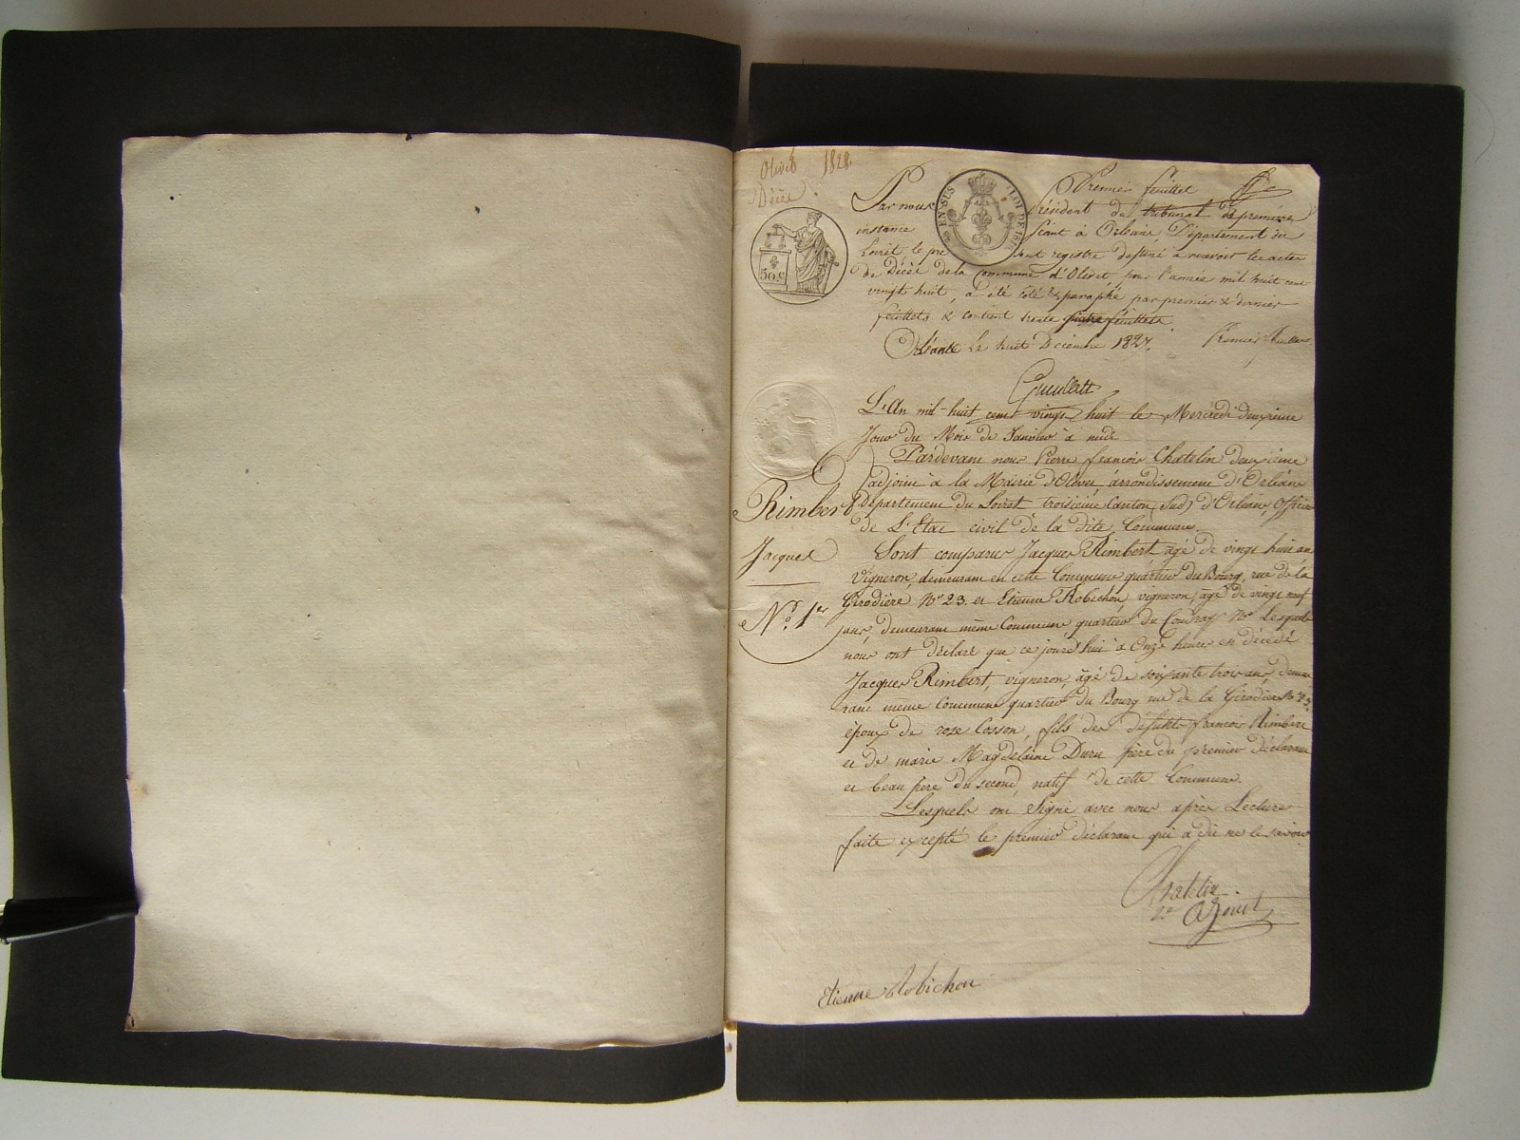 Olivet 1828
Décès.
Premier feuillet
Par nous Président du tribunal de première
instance séant à Orléans, Département du
Loiret le présent registre destiné à recevoir les actes
de Décès de la Commune d'Olivet, pour l'année mil huit cent
vingt huit, a été coté & paraphé par premier & dernier
feuillets & contient trente feuillets.
Orléans le huit Décembre 1827.
EN SUS
LOI DE 18
50 c
L'An mil huit cent vingt huit le Mercredi deuxième
Jour du Mois de Janvier à midi
Pardevant nous Pierre françois Chatelin deuxième
adjoint à la Mairie d'Olivet arrondissement d'Orléans
Département du Loiret troisième Canton (Sud) d'Orléans, Officier
de L'Etat civil de la dite Commune.
Rimbert
Jacques
N.° 1er
Sont comparus Jacques Rimbert agé de vingt huit ans
Vigneron, demeurant en cette Commune quartier du Bourg, rue de la
Girodière N° 23. et Etienne Robichon vigneron, agé de vingt neuf
ans demeurant même Commune quartier du Coudray N° Lesquels
nous ont déclaré que ce jourd'hui à Onze heures est décédé
Jacques Rimbert, vigneron, âgé de soixante trois ans, demeu
rant même Commune quartier du Bourg rue de la Girodière N° 23.
époux de rose Cosson, fils des défunts francois Rimbert
et de marie Magdelaine Duru père du premier déclarant
et beau père du second, natif de cette Commune.
Lesquels ont Signé avec nous après Lecture
faite excepté le premier déclarant qui a dit ne le savoir
Chatelin
2e Adjoint
Etienne Robichon